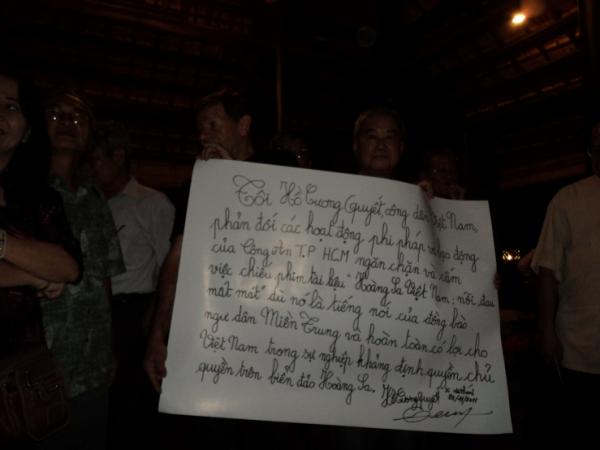 Tôi Hồ Cương Quyết, công dân Việt Nam,
phản đối các hoạt động phi pháp và
của Công An T.P HCM ngăn chặn và cấm
việc chiếu phim tài liệu "Hoàng Sa Việt Nam: nỗi đau
mất mát" dù nó là tiếng nói của đồng bào
ngư dân Miền Trung và hoàn toàn có lợi cho
Việt Nam trong sự nghiệp khẳng định quyền chủ
quyền trên biển đảo Hoàng Sa.
Hồ Cương Quyết